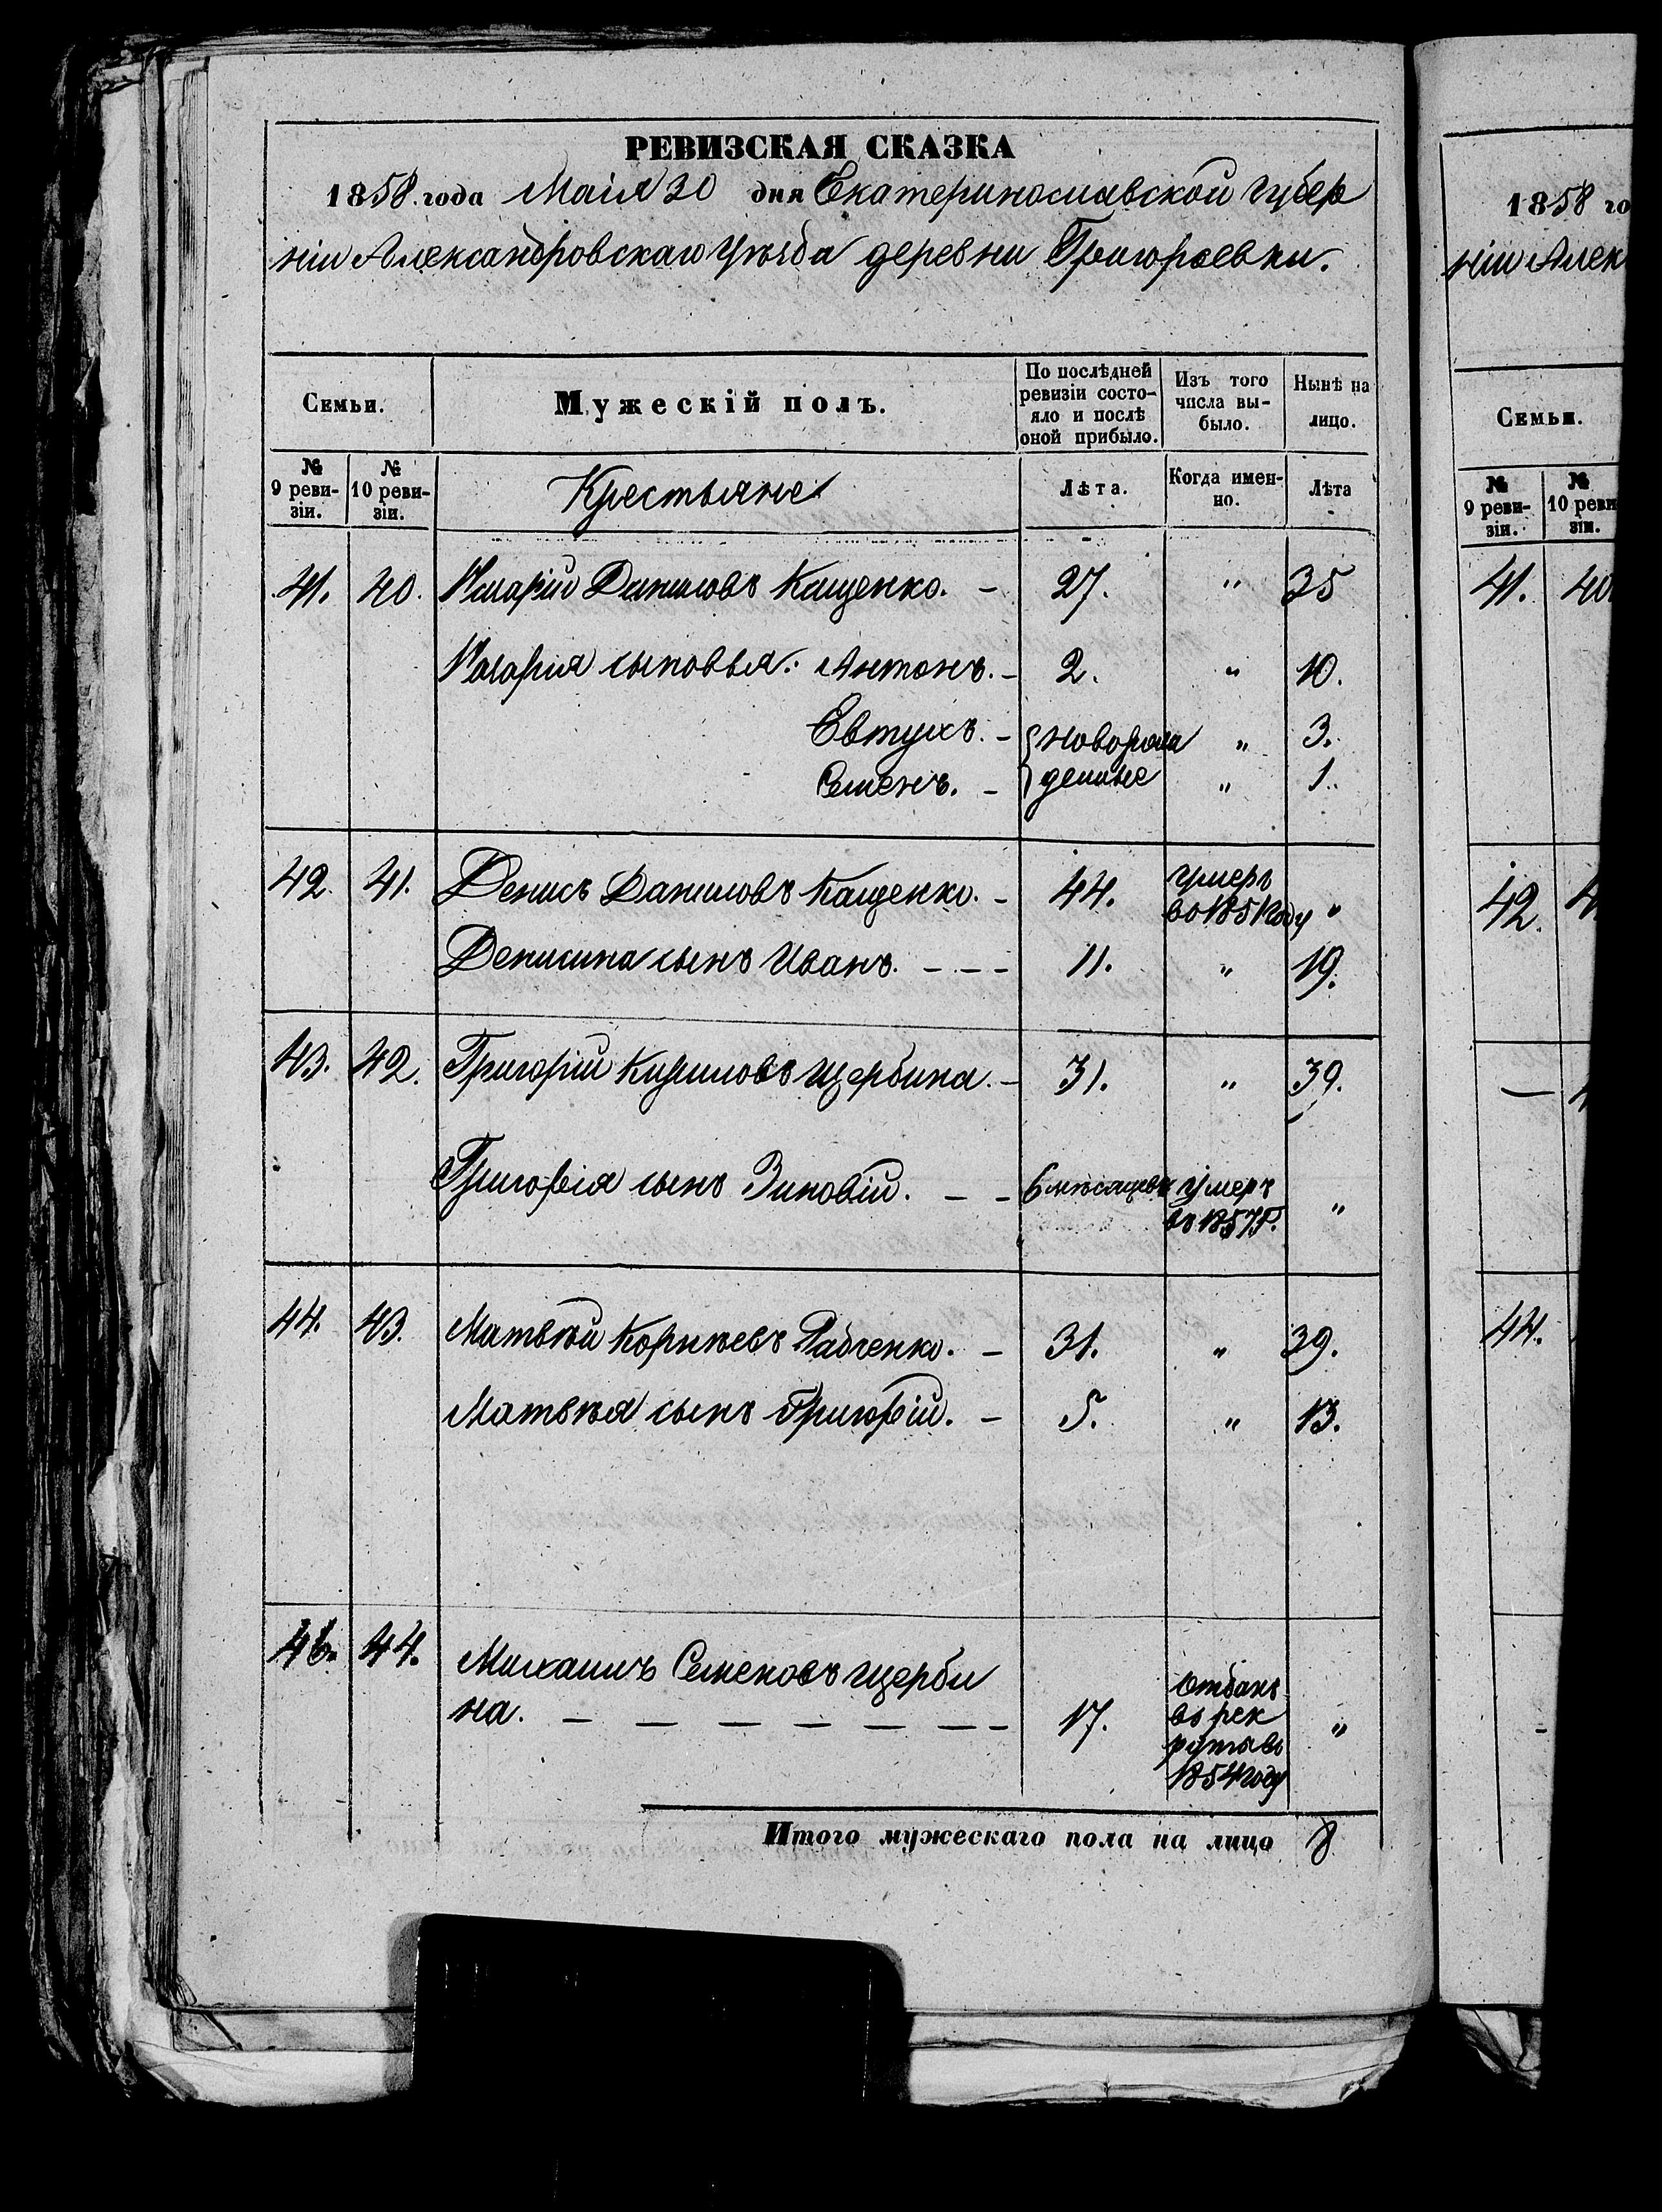 РЕВИЗСКАЯ СКАЗКА
1858 года Маія 30 дня Екатеринославской Губер
ніи Александровскаго Уѣзда деревни Григорьевки.
Семьи.
Мужескій полъ.
По послѣдней ревизіи состо-
яло и послѣ оной прибыло.
Изъ того числа вы-
было.
Нынѣ на лицо.
№ 9 реви-
зіи.
№ 10 реви-
зіи.
Крестьяне
Лѣта.
Когда имен-
но.
Лѣта
41. 40. Даниловъ Кащенко. - 27. " 35
сыновья: Антонъ. - 2. " 10.
Евтухъ. - новорож " 3.
Семенъ. - денные " 1.
42. 41. Денисъ Даниловъ Кащенко. - 44. умеръ во 1851 году "
Денисина сынъ Иванъ. - - - 11. " 19.
43. 42. Григорій Кириловъ Щербина. - 31. " 39.
Григорія сынъ Зиновій. - - 6 мѣсяцевъ умеръ въ 1857 г. "
44. 43. Матвѣй Корнѣевъ Рабченко. - 31. " 39.
Матвѣя сынъ Григорій. - 5. " 13.
44. Михаилъ Семеновъ Щерби
на. - - - - - - - 17. Отданъ
въ рек
руты въ
1854 году "
Итого мужескаго пола на лицо 8
1858 го
ніи Алек
Семьи.
№ 9 реви-
зіи.
№ 10 реви
зіи.
41. 40
42. 4
—
44.